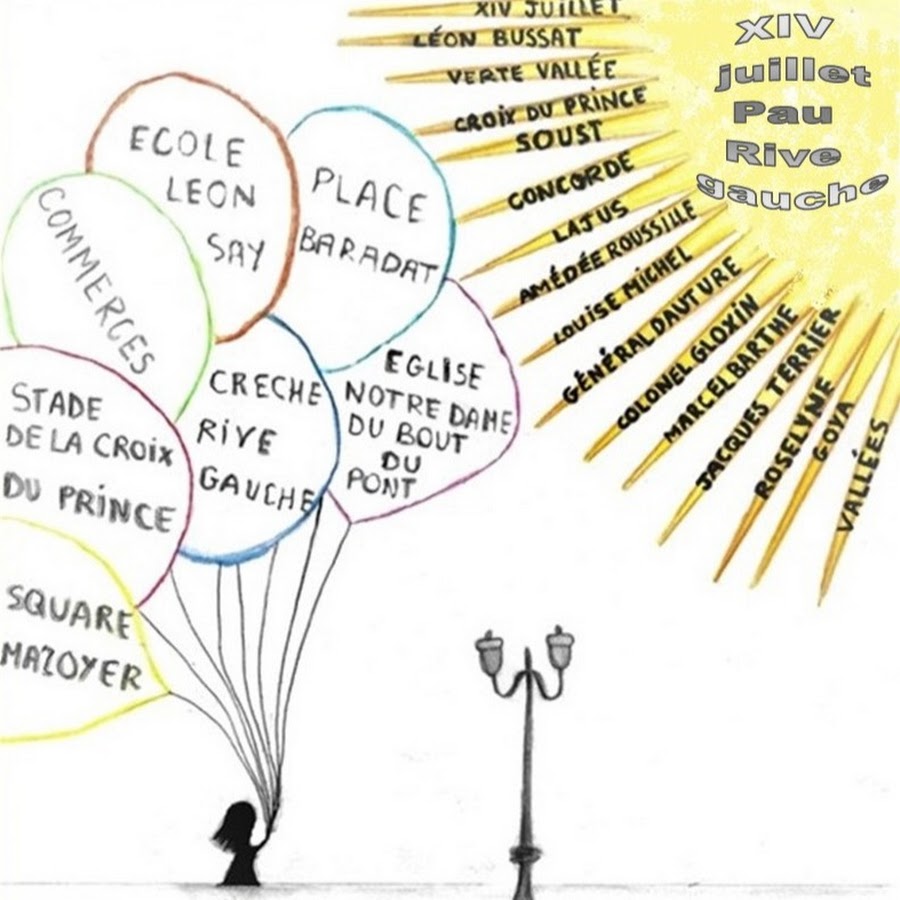 XIV JUILLET
LÉON BUSSAT
VERTE VALLÉE
CROIX DU PRINCE
SOUST
CONCORDE
LAJUS
AMÉDÉE ROUSSILLE
LOUISE MICHEL
GÉNÉRAL DAUTURE
COLONEL GLOXIN
MARCEL BARTHE
JACQUES TERRIER
ROSELYNE
GOYA
VALLÉES
XIV
juillet
Pau
Rive
gauche
ECOLE
LEON
SAY
PLACE
BARADAT
COMMERCES
EGLISE
NOTRE DAME
DU BOUT
DU
PONT
CRECHE
RIVE
GAUCHE
STADE
DE LA CROIX
DU PRINCE
SQUARE
MAZOYER